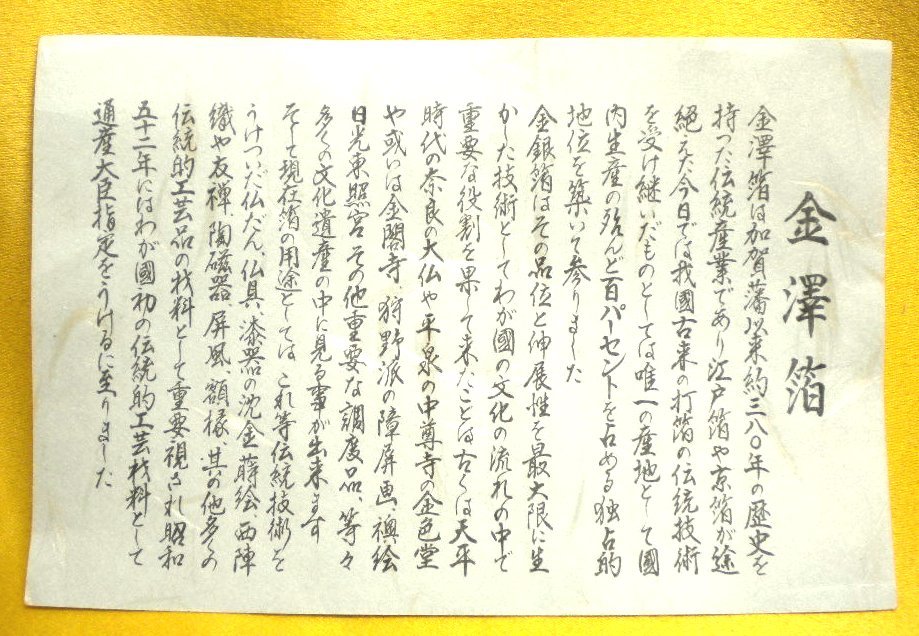 金澤箔
金澤箔は加賀藩以来約三八〇年の歴史を
持つた伝統産業であり江戸箔や京箔が途
絶えた今日では我國古来の打箔の伝統技術
を受け継いだものとしては唯一の産地として國
内生産の殆んど百パーセントを占める独占的
地位を築いて参りました
金銀箔はその品位と伸展性を最大限に生
かした技術としてわが國の文化の流れの中で
重要な役割を果して来たことは古くは天平
時代の奈良の大仏や平泉の中尊寺の金色堂
や或いは金閣寺、狩野派の障屏画、襖絵
日光東照宮その他重要な調度品、等々
多くの文化遺産の中に見る事が出来ます
そして現在箔の用途としては、これ等伝統技術を
うけついだ仏だん、仏具、漆器の沈金蒔絵、西陣
織や友禅、陶磁器、屏風、額椽、其の他多くの
伝統的工芸品の材料として重要視され昭和
五十二年にはわが國初の伝統的工芸材料として
通産大臣指定をうけるに至りました